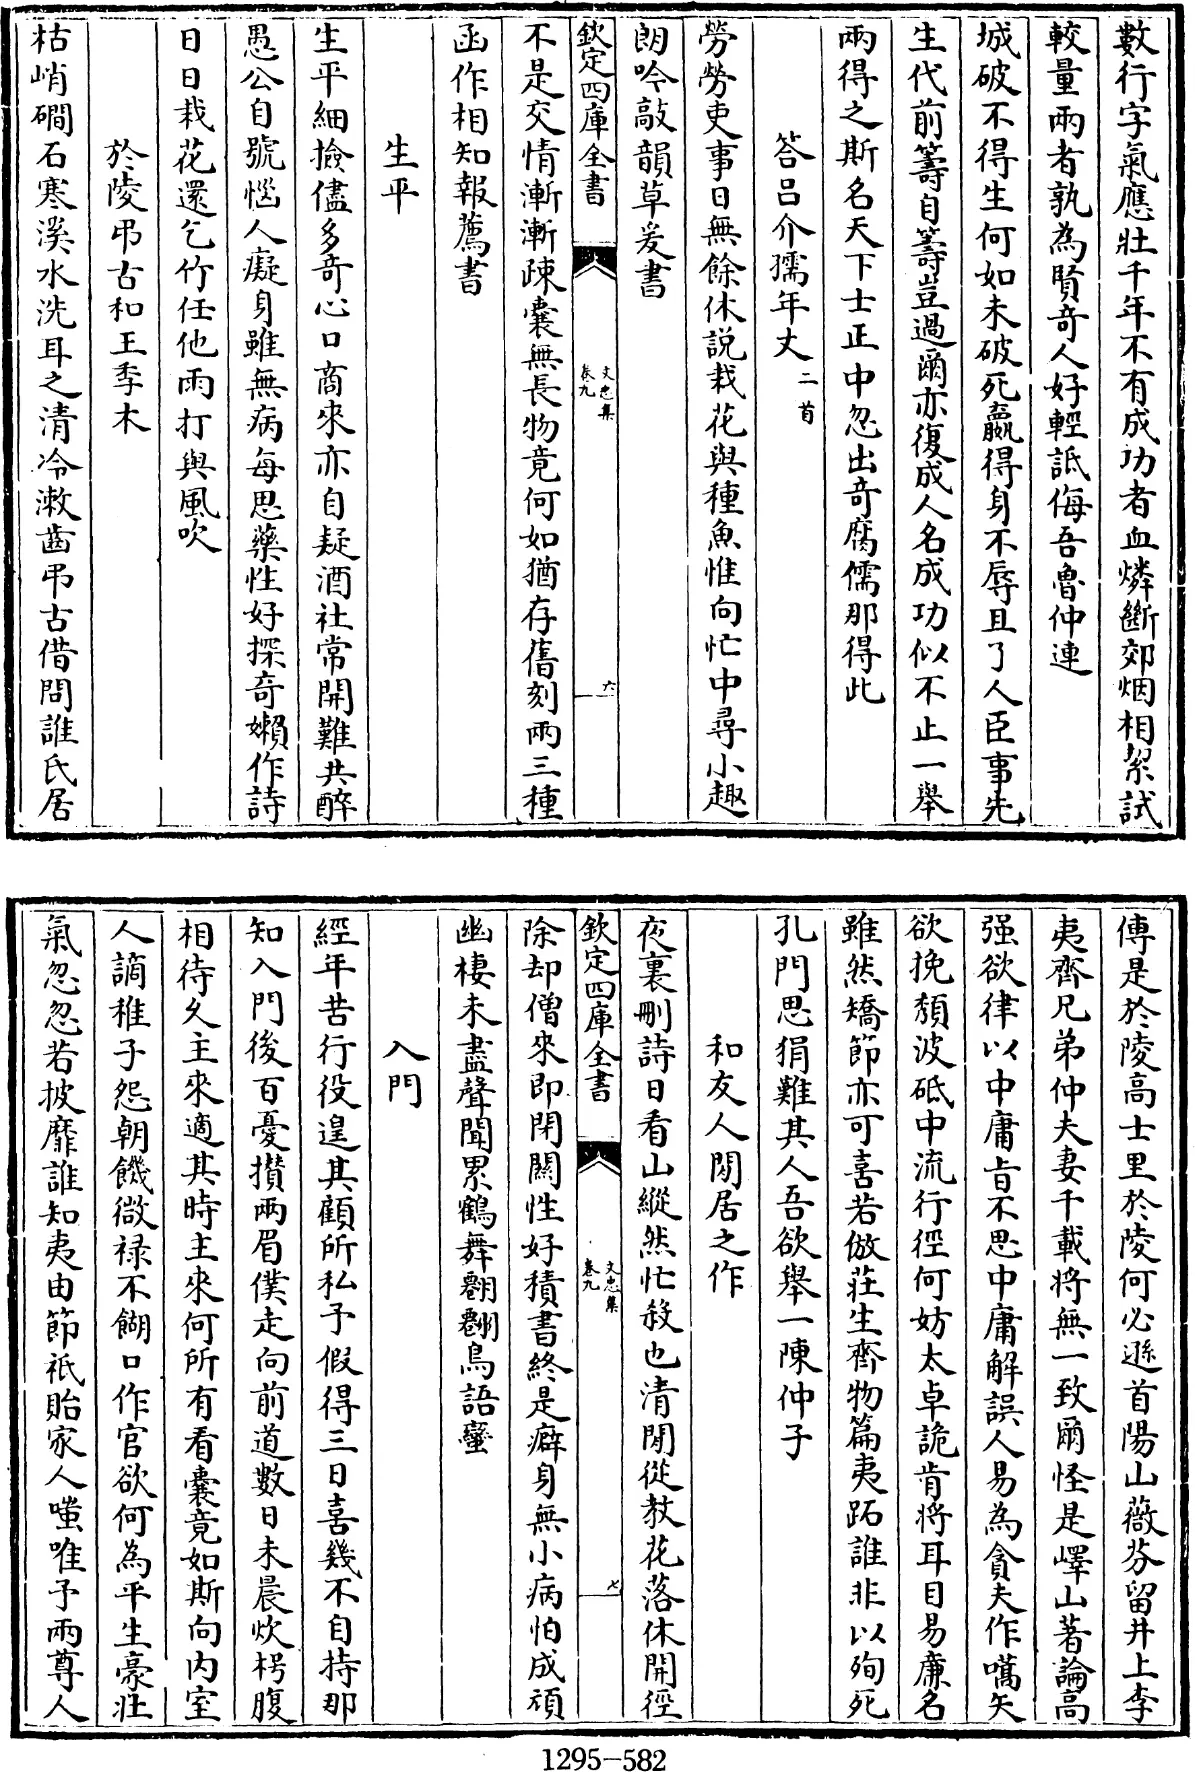 數行字氣應壯千年不有成功者血燐斷郊烟相絜試
較量兩者孰為賢奇人好輕詆侮吾魯仲連
城破不得生何如未破死贏得身不辱且了人臣事先
生代前籌自籌豈過爾亦復成人名成功似不止一舉
兩得之斯名天下士正中忽出奇腐儒那得此
答呂介孺年丈二首
勞勞吏事日無餘休説栽花與種魚惟向忙中尋小趣
朗吟敲韻草爰書
欽定四庫全書
文忠集
卷九
六
不是交情漸漸疎囊無長物竟何如猶存舊刻兩三種
函作相知報薦書
生平
生平細撿儘多奇心口商來亦自疑酒社常開難共醉
愚公自號惱人癡身雖無病每思藥性好探奇嬾作詩
日日栽花還乞竹任他雨打與風吹
於陵弔古和王季木
枯峭磵石寒溪水洗耳之清冷漱齒弔古借問誰氏居
傳是於陵高士里於陵何必遜首陽山薇芬留井上李
夷齊兄弟仲夫妻千載將無一致爾怪是嶧山著論高
强欲律以中庸旨不思中庸解誤人易為貪夫作嚆矢
欲挽頽波砥中流行徑何妨太卓詭肯將耳目易㢘名
雖然矯節亦可喜若倣莊生齊物篇夷跖誰非以殉死
孔門思狷難其人吾欲舉一陳仲子
和友人閒居之作
夜裏刪詩日看山縱然忙殺也清閒從教花落休開徑
欽定四庫全書
文忠集
卷九
七
除却僧來即閉關性好積書終是癖身無小病怕成頑
幽棲未盡聲聞累鶴舞翻翻鳥語蠻
入門
經年苦行役遑其顧所私予假得三日喜幾不自持那
知入門後百憂攢兩眉僕走向前道數日未晨炊枵腹
相待久主來適其時主來何所有看囊竟如斯向内室
人謫稚子怨朝饑微禄不餬口作官欲何為平生豪壯
氣忽忽若披靡誰知夷由節祇貽家人嗤唯予兩尊人
1295-582